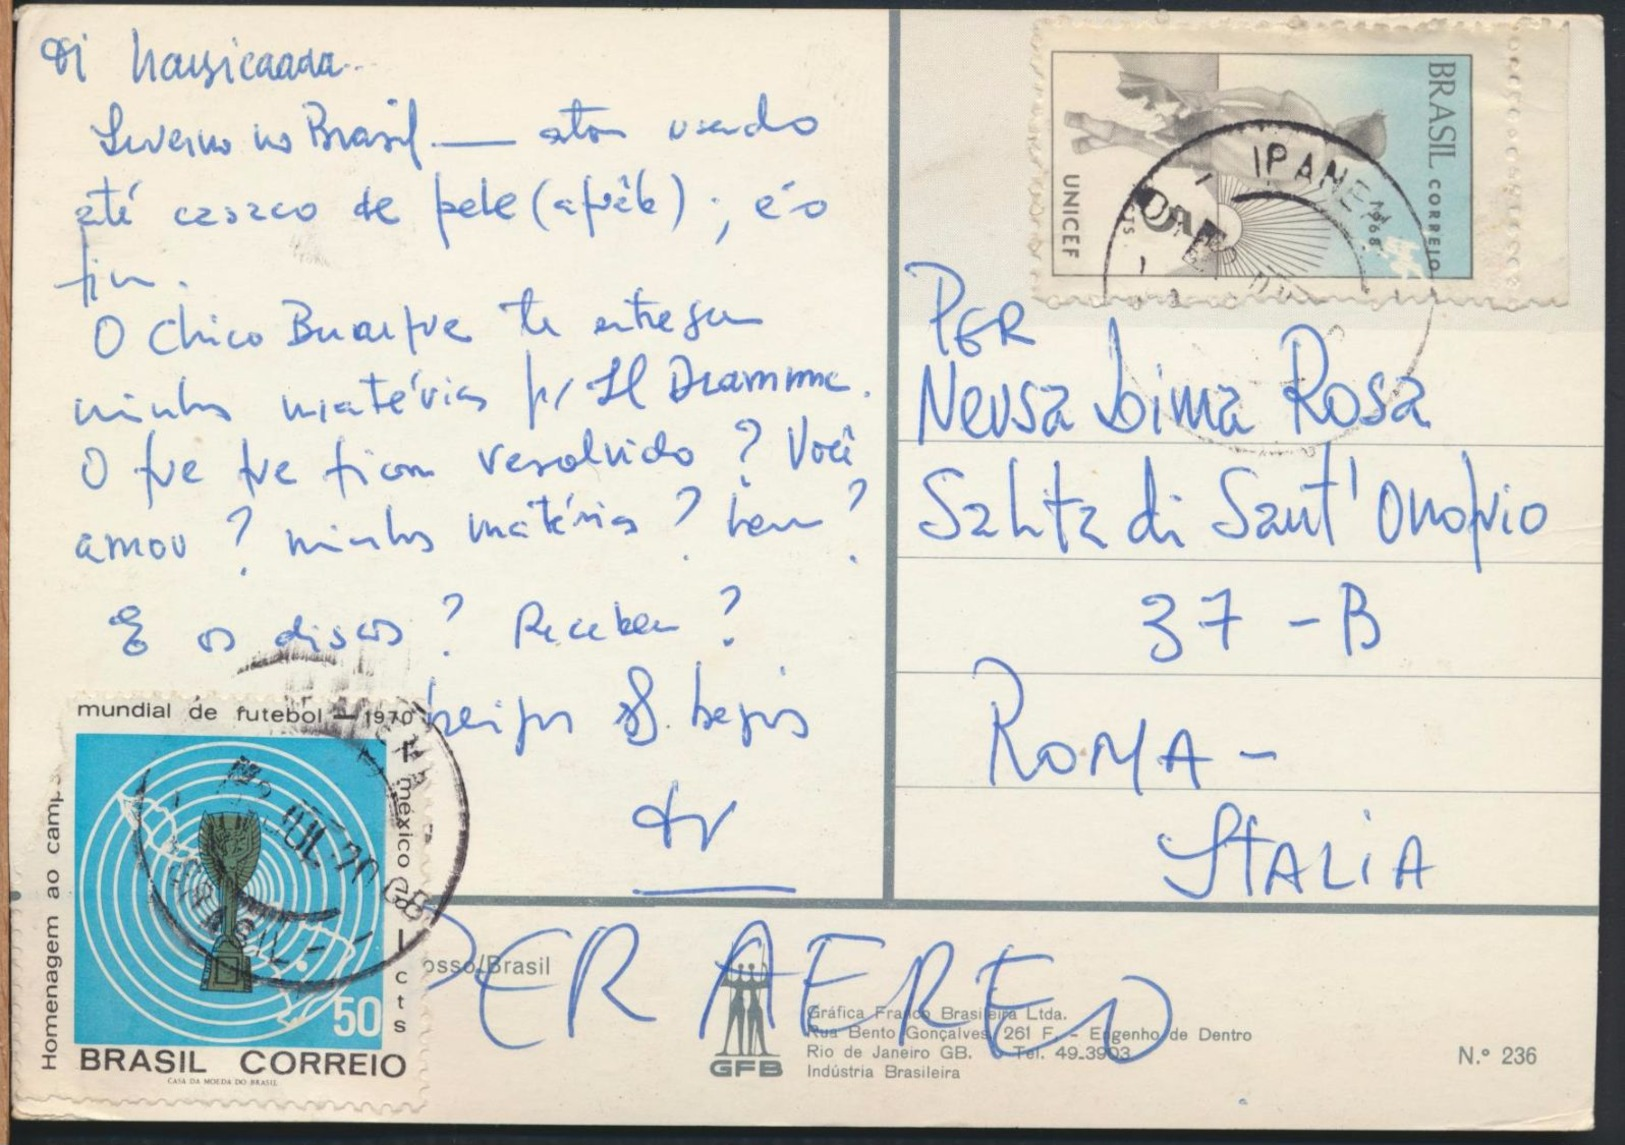 Oi Nausicaaaa..
Inverno no Brasil — estou usando
até casaco de pele (après) ; é o
fim.
O Chico Buarque te entregou
minhas matérias p/ Il Dramma.
O que que ficou resolvido ? Você
amou ? minhas matérias ? hem ?
E os discos ? Recebeu ?
beijos
PER
Neusa Lima Rosa
Salita di Sant' Onofrio
37 - B
ROMA -
ITALIA
PER AEREO
BRASIL CORREIO
UNICEF
1968
CTS.
IPANEMA
mundial de futebol — 1970
méxico
cts
Homenagem ao camp
50
BRASIL CORREIO
CASA DA MOEDA DO BRASIL
BRASIL
JUL
osso/Brasil
GFB
Gráfica Franco Brasileira Ltda.
Rua Bento Gonçalves, 261 F. - Engenho de Dentro
Rio de Janeiro GB. Tel. 49-3903
Indústria Brasileira
N.º 236